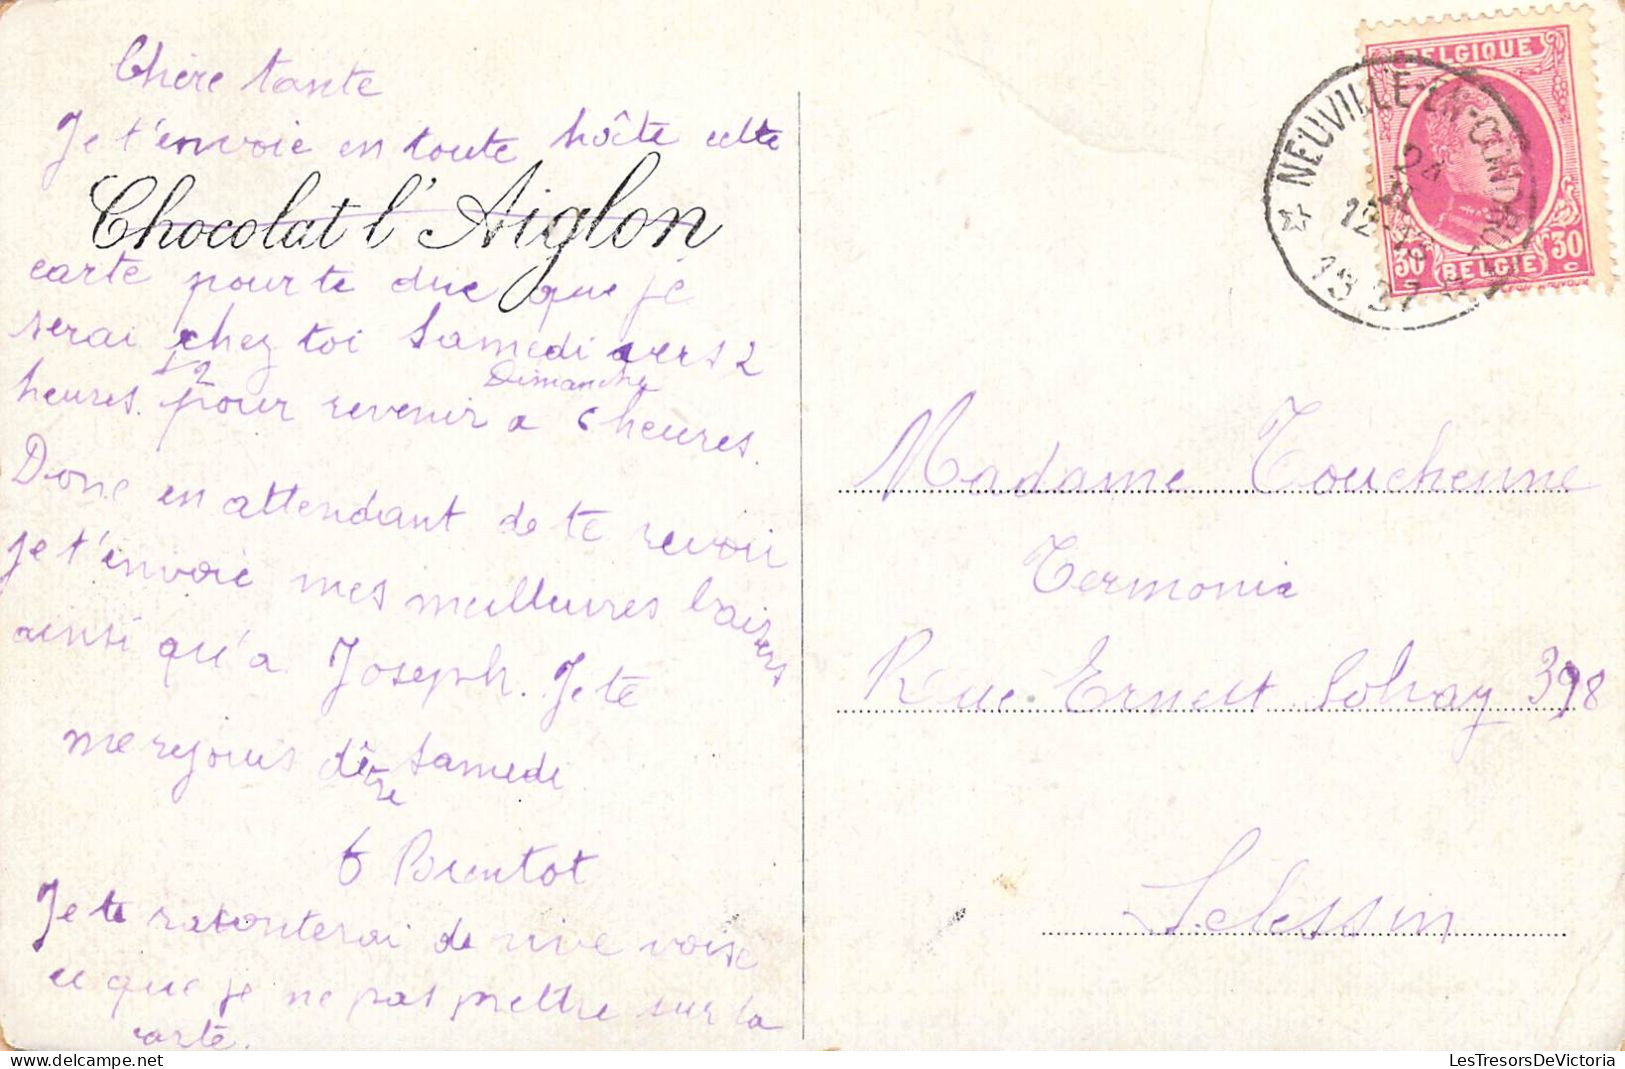 Chère tante
Je t'envoie en toute hôte cette
Chocolat l'Aiglon
carte pour te dire que je
serai chez toi Samedi vers 2
heures 1/2 pour revenir Dimanche a 6 heures.
Donc en attendant de te revoir
je t'envoie mes meilleures baisers
ainsi qu'a Joseph. Je te
me rejouis d'être Samedi
Bientot
Je te raconterai de vive voise
ce que je ne pas mettre sur la
carte.
BELGIQUE
NEUVILLE-EN-CONDROZ
24
12
1927
30 BELGIE 30
c
Madame Touchenne
Termonia
Rue Ernest Solvay 398
Sclessin
LesTresorsDeVictoria